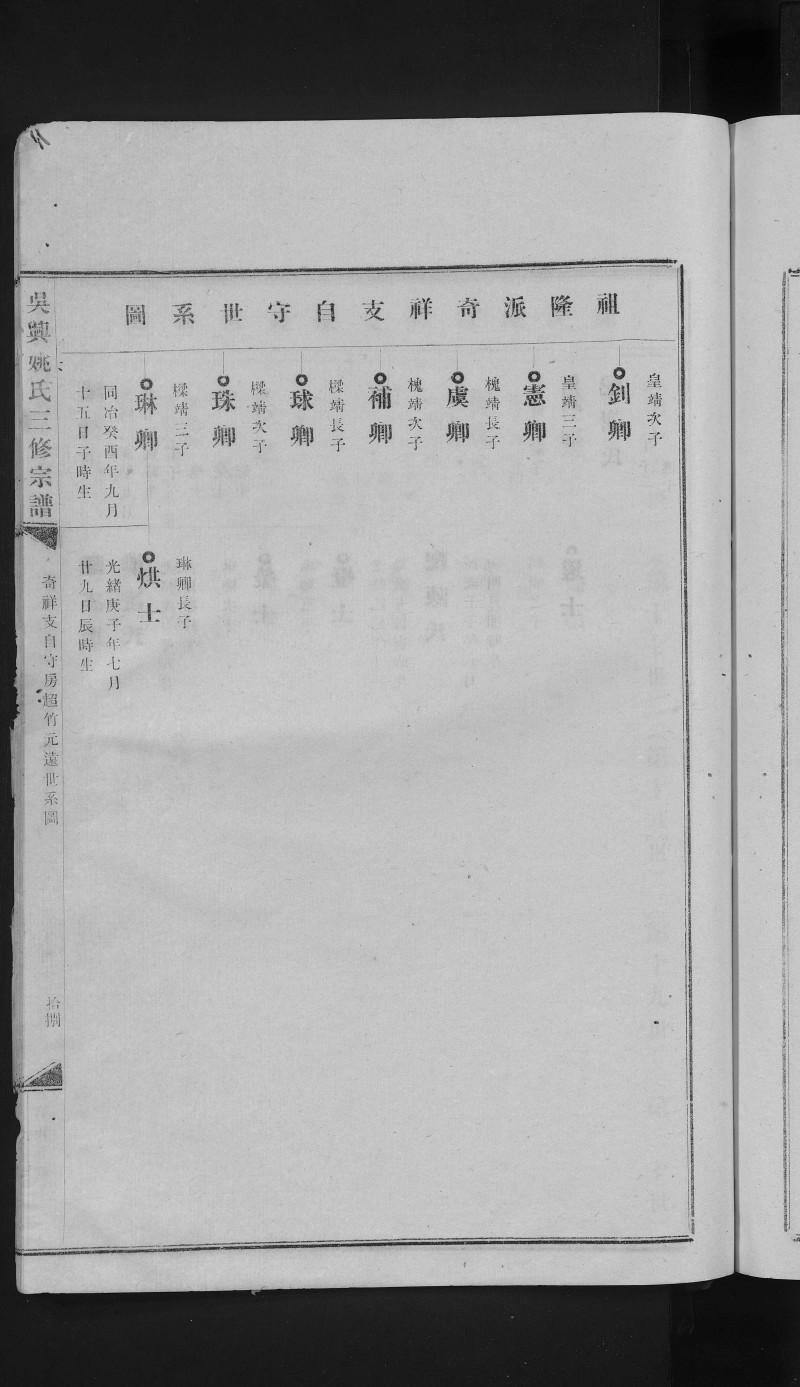 祖隆派奇祥支自守世系圖
皇靖次子
釗卿
皇靖三子
憲卿
槐靖長子
虞卿
槐靖次子
補卿
樑靖長子
球卿
樑靖次子
珠卿
樑靖三子
琳卿
同治癸酉年九月
十五日子時生
琳卿長子
烘士
光緒庚子年七月
廿九日辰時生
吳興姚氏三修宗譜
奇祥支自守房超竹元遠世系圖
拾捌